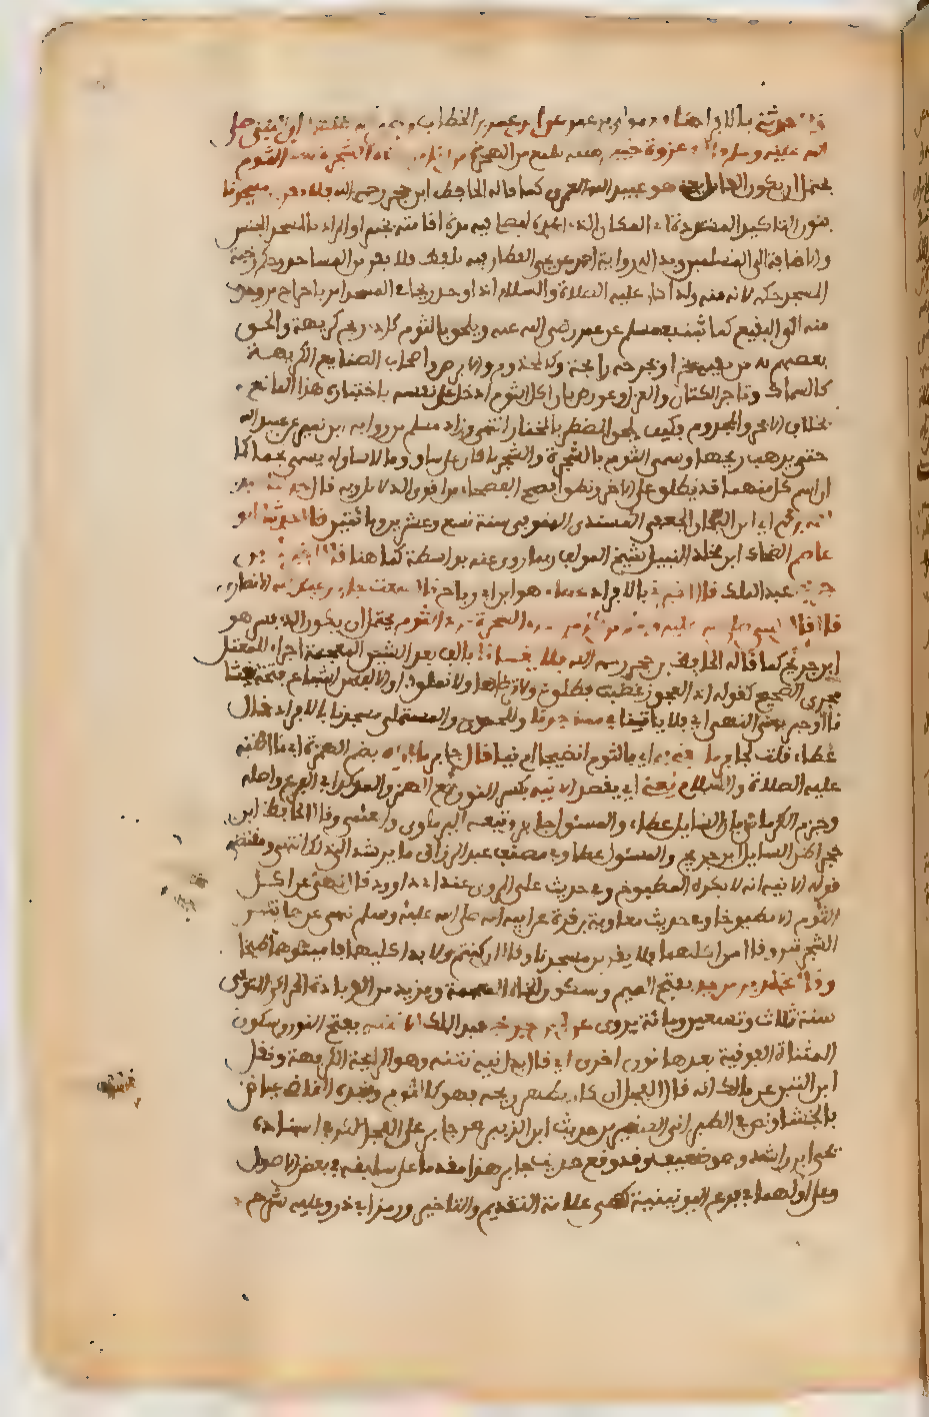 قال حدثني بالافراد نافع عن ابن عمر بن الخطاب رضي الله عنهما ان النبي صلى
الله عليه وسلم قال في غزوة خيبر من اكل من هذه الشجرة يعني الثوم
يحتمل ان يكون القايل يعني هو عبيد الله العمري كما قاله الحافظ ابن حجر رحمه الله فلا يقربن مسجدنا
بنون التاكيد المشددة اي المكان الذي اعده ليصلي فيه مدة اقامته بخيبر او المراد بالمسجد الجنس
والاضافة الى المسلمين ويدل له رواية احمد عن يحيى القطان فيه بلفظ فلا يقربن المساجد وحكم رحبة
المسجد حكمه لانه منه ولذا كان عليه الصلاة والسلام اذا وجد ريحها في المسجد امر باخراج من وجدت
منه الى البقيع كما ثبت في مسلم عن عمر رضي الله عنه ويلحق بالثوم كل ذي ريح كريهة والحق
بعضهم به من بفيه بخر او بجرحه رايحة وكالمجذوم والابرص واصحاب الصنايع الكريهة
كالسماك وتاجر الكتان والغزل وعورض بان اكل الثوم ادخل على نفسه باختياره هذا المانع
بخلاف الابخر والمجذوم فكيف يلحق المضطر بالمختار انتهى وزاد مسلم من رواية ابن نمير عن عبيد الله
حتى يذهب ريحها وسمى الثوم بالشجرة والشجر ما قام على ساق وما لا ساق له يسمى نجما كما
ان اسم كل منهما قد يطلق على الاخر ونطق افصح الفصحاء من اقوى الدلايل وبه قال حدثنا عبد
الله بن محمد اي ابن اليمان الجعفي المسندي المتوفى سنة تسع وعشرين ومائتين قال حدثنا ابو
عاصم الضحاك ابن مخلد النبيل شيخ المولف وربما روى عنه بواسطة كما هنا قال اخبرنا ابن
جريج عبد الملك قال اخبرني بالافراد عطاء هو ابن ابي رباح قال سمعت جابر بن عبد الله الانصاري
قال قال النبي صلى الله عليه وسلم من اكل من هذه الشجرة يريد الثوم يحتمل ان يكون الذي فسر هو
ابن جريج كما قاله الحافظ بن حجر رحمه الله فلا يغشانا بالف بعد الشين المعجمة اجراء للمعتل
مجرى الصحيح كقوله اذا العجوز غضبت فطلق ولا ترضاها ولا تملق او الالف من اشباع فتحة يغشنا
قال وخبر بمعنى النهي اي فلا ياتينا في مسجدنا وللحموي والمستملي مسجدنا بالافراد قال
عطاء قلت لجابر ما يعني به اي بالثوم انضيجا ام نيا قال جابر ما اراه بضم الهمزة اي ما اظنه
عليه الصلاة والسلام يعني اي يقصد الا نيه بكسر النون مع الهمز والمد كما في الفرع واصله
وجزم الكرماني بان السايل عطاء والمسئول جابر وتبعه البرماوي والعيني وقال الحافظ ابن
حجر اظن السايل ابن جريج والمسئول عطاء وفي مصنف عبد الرزاق ما يرشد الى ذلك انتهى ومقتضى
قوله الا نيه انه لا يكره المطبوخ وفي حديث علي المروي عند ابي داوود قال نهي عن اكل
الثوم الا مطبوخا وفي حديث معاوية بن قرة عن ابيه انه صلى الله عليه وسلم نهى عن هاتين
الشجرتين وقال من اكلهما فلا يقربن مسجدنا وقال ان كنتم ولا بد اكليهما فاميتوهما طبخا
وقال مخلد بن يزيد بفتح الميم وسكون الخاء المعجمة ويزيد من الزيادة الحراني المتوفى
سنة ثلاث وتسعين ومائة يروى عن ابن جريج عبد الملك الا نتنه بفتح النون وسكون
المثناة الفوقية بعدها نون اخرى اي قال بدل نيه نتنه وهو الرايحة الكريهة ونقل
ابن التين عن مالك انه قال الفجل ان كان يظهر ريحه فهو كالثوم وقيده القاضي عياض
بالجشاء ونص في الطبراني الصغير من حديث ابي الزبير عن جابر على الفجل لكن في اسناده
يحيى ابن راشد وهو ضعيف وقد وقع حديث جابر هذا مقدما على سابقه في بعض الاصول
وعلى اولهما في فرع اليونينية كهي علامة التقديم والتاخير ورمز ابي ذر وعليه شرحهم